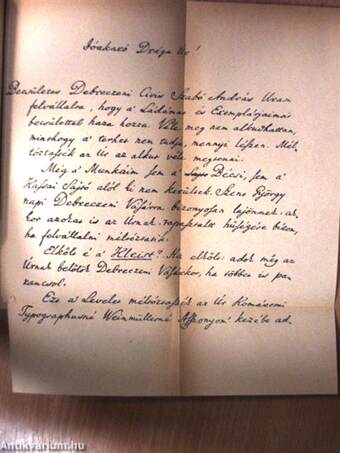 Jóakaró Drága Úr!
Becsületes Debreczeni Civis Szabó András Uram
felvállalta, hogy a' Ládámat és Exemplárjaimat
becsülettel haza hozza. Véle meg nem alkudhattam,
minthogy a' terhet nem tudja, mennyi lészen. Mél-
tóztassék az Úr az alkut véle megtenni.
Még a' Munkáim sem a' Bécsi, sem a'
Kassai Sajtó alól ki nem kerültek. Szent György
napi Debreczeni Vásárra bizonyosan lejönnek: ak-
kor azokat is az Úrnak tapasztalt hűségére bízom,
ha felvállalni méltóztatik.
Elkölt é a' Kleist? Ha elkölt, adok még az
Úrnak belőle Debreczeni Vásárkor, ha többet is pa-
rancsol.
Ezt a' Levelet méltóztassék az Úr Komáromi
Typographusné Weinmüllerné Asszonyom kezébe ad-
Antikvarium.hu